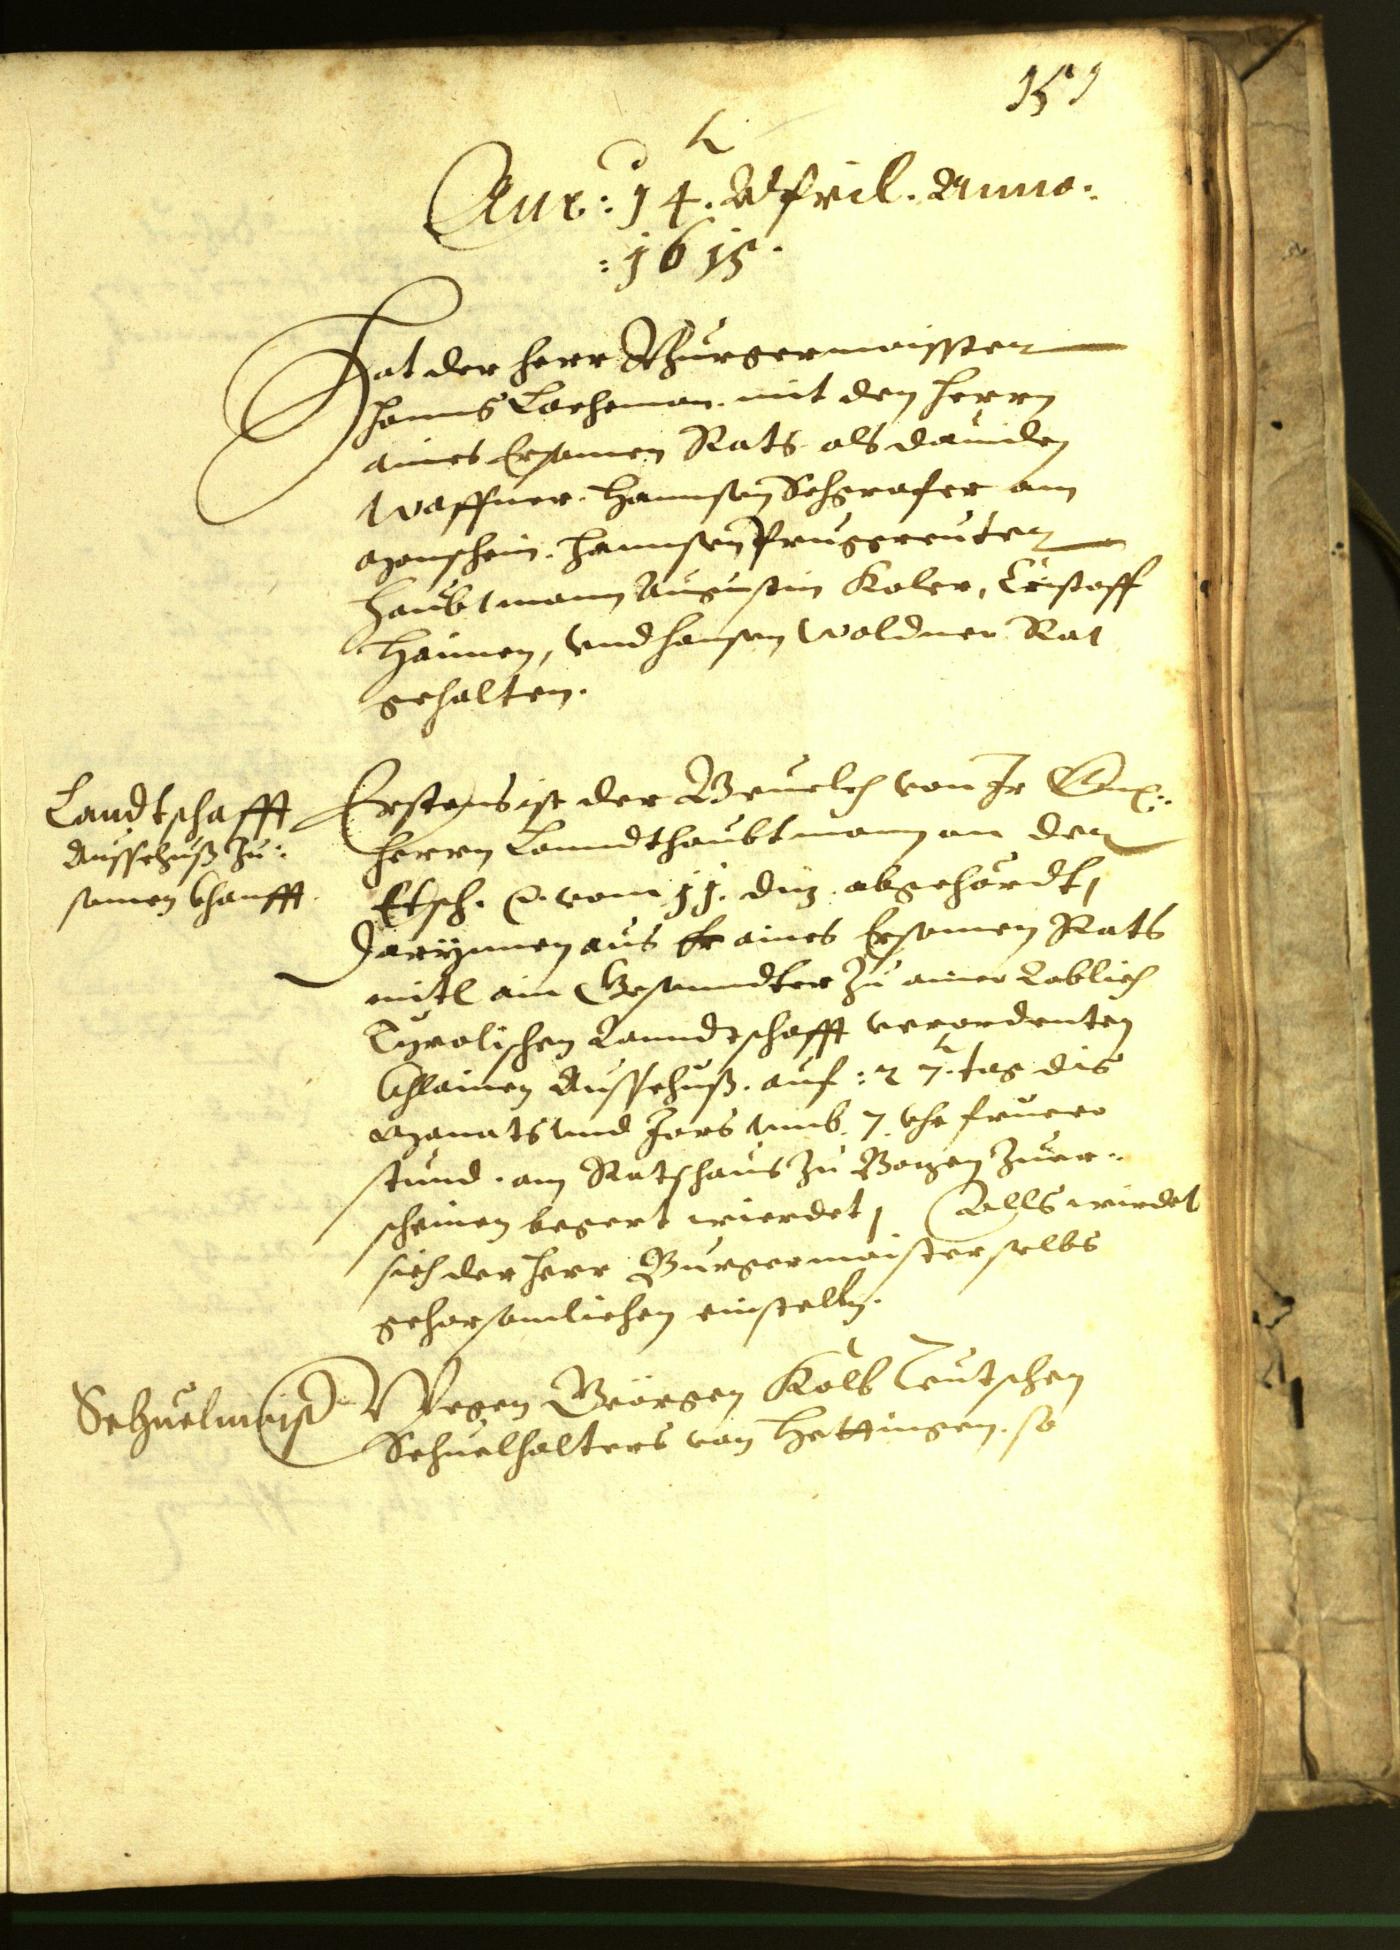 151
Am: 14. April. Anno:
:1615.
Hat der herr Burgermaisster
Hanns Lacheman mit den herrn
aines Ersamen Rats als dauiden
Waffner. Hannsen Schgrafer am
Monschein. Hannsen Prugkreuter
Haubtmann Augustin Koler, Cristoff
Haimen, vnd Hansen Waldner Rat
gehalten.
Landtschafft
Ausschuß Zu:
samen khonfft.
Erstens ist der Beuelch von Ir Gn:
herrn Lanndthaubtmann an der
Etsch. &. vom 11. diz abgehördt,
Darynnen aus aines Ersamen Rats
mitl ain Gesanndter zu ainer Loblich
Tyrolischen Lanndtschafft verordenten
Khlainen Ausschuß. auf: 27. tag dis
Monats vnd Jars vmb 7. vhr fruer
stund. am Ratshaus zu Bozen zuer:
scheinen begert wierdet, Alls wirdet
sich der herr Burgermaister selbs
gehorsamlichen einstelln.
Schuelmaist
Wegen Geörgen Kolb Teutschen
Schuelhalters von Hettingen. so